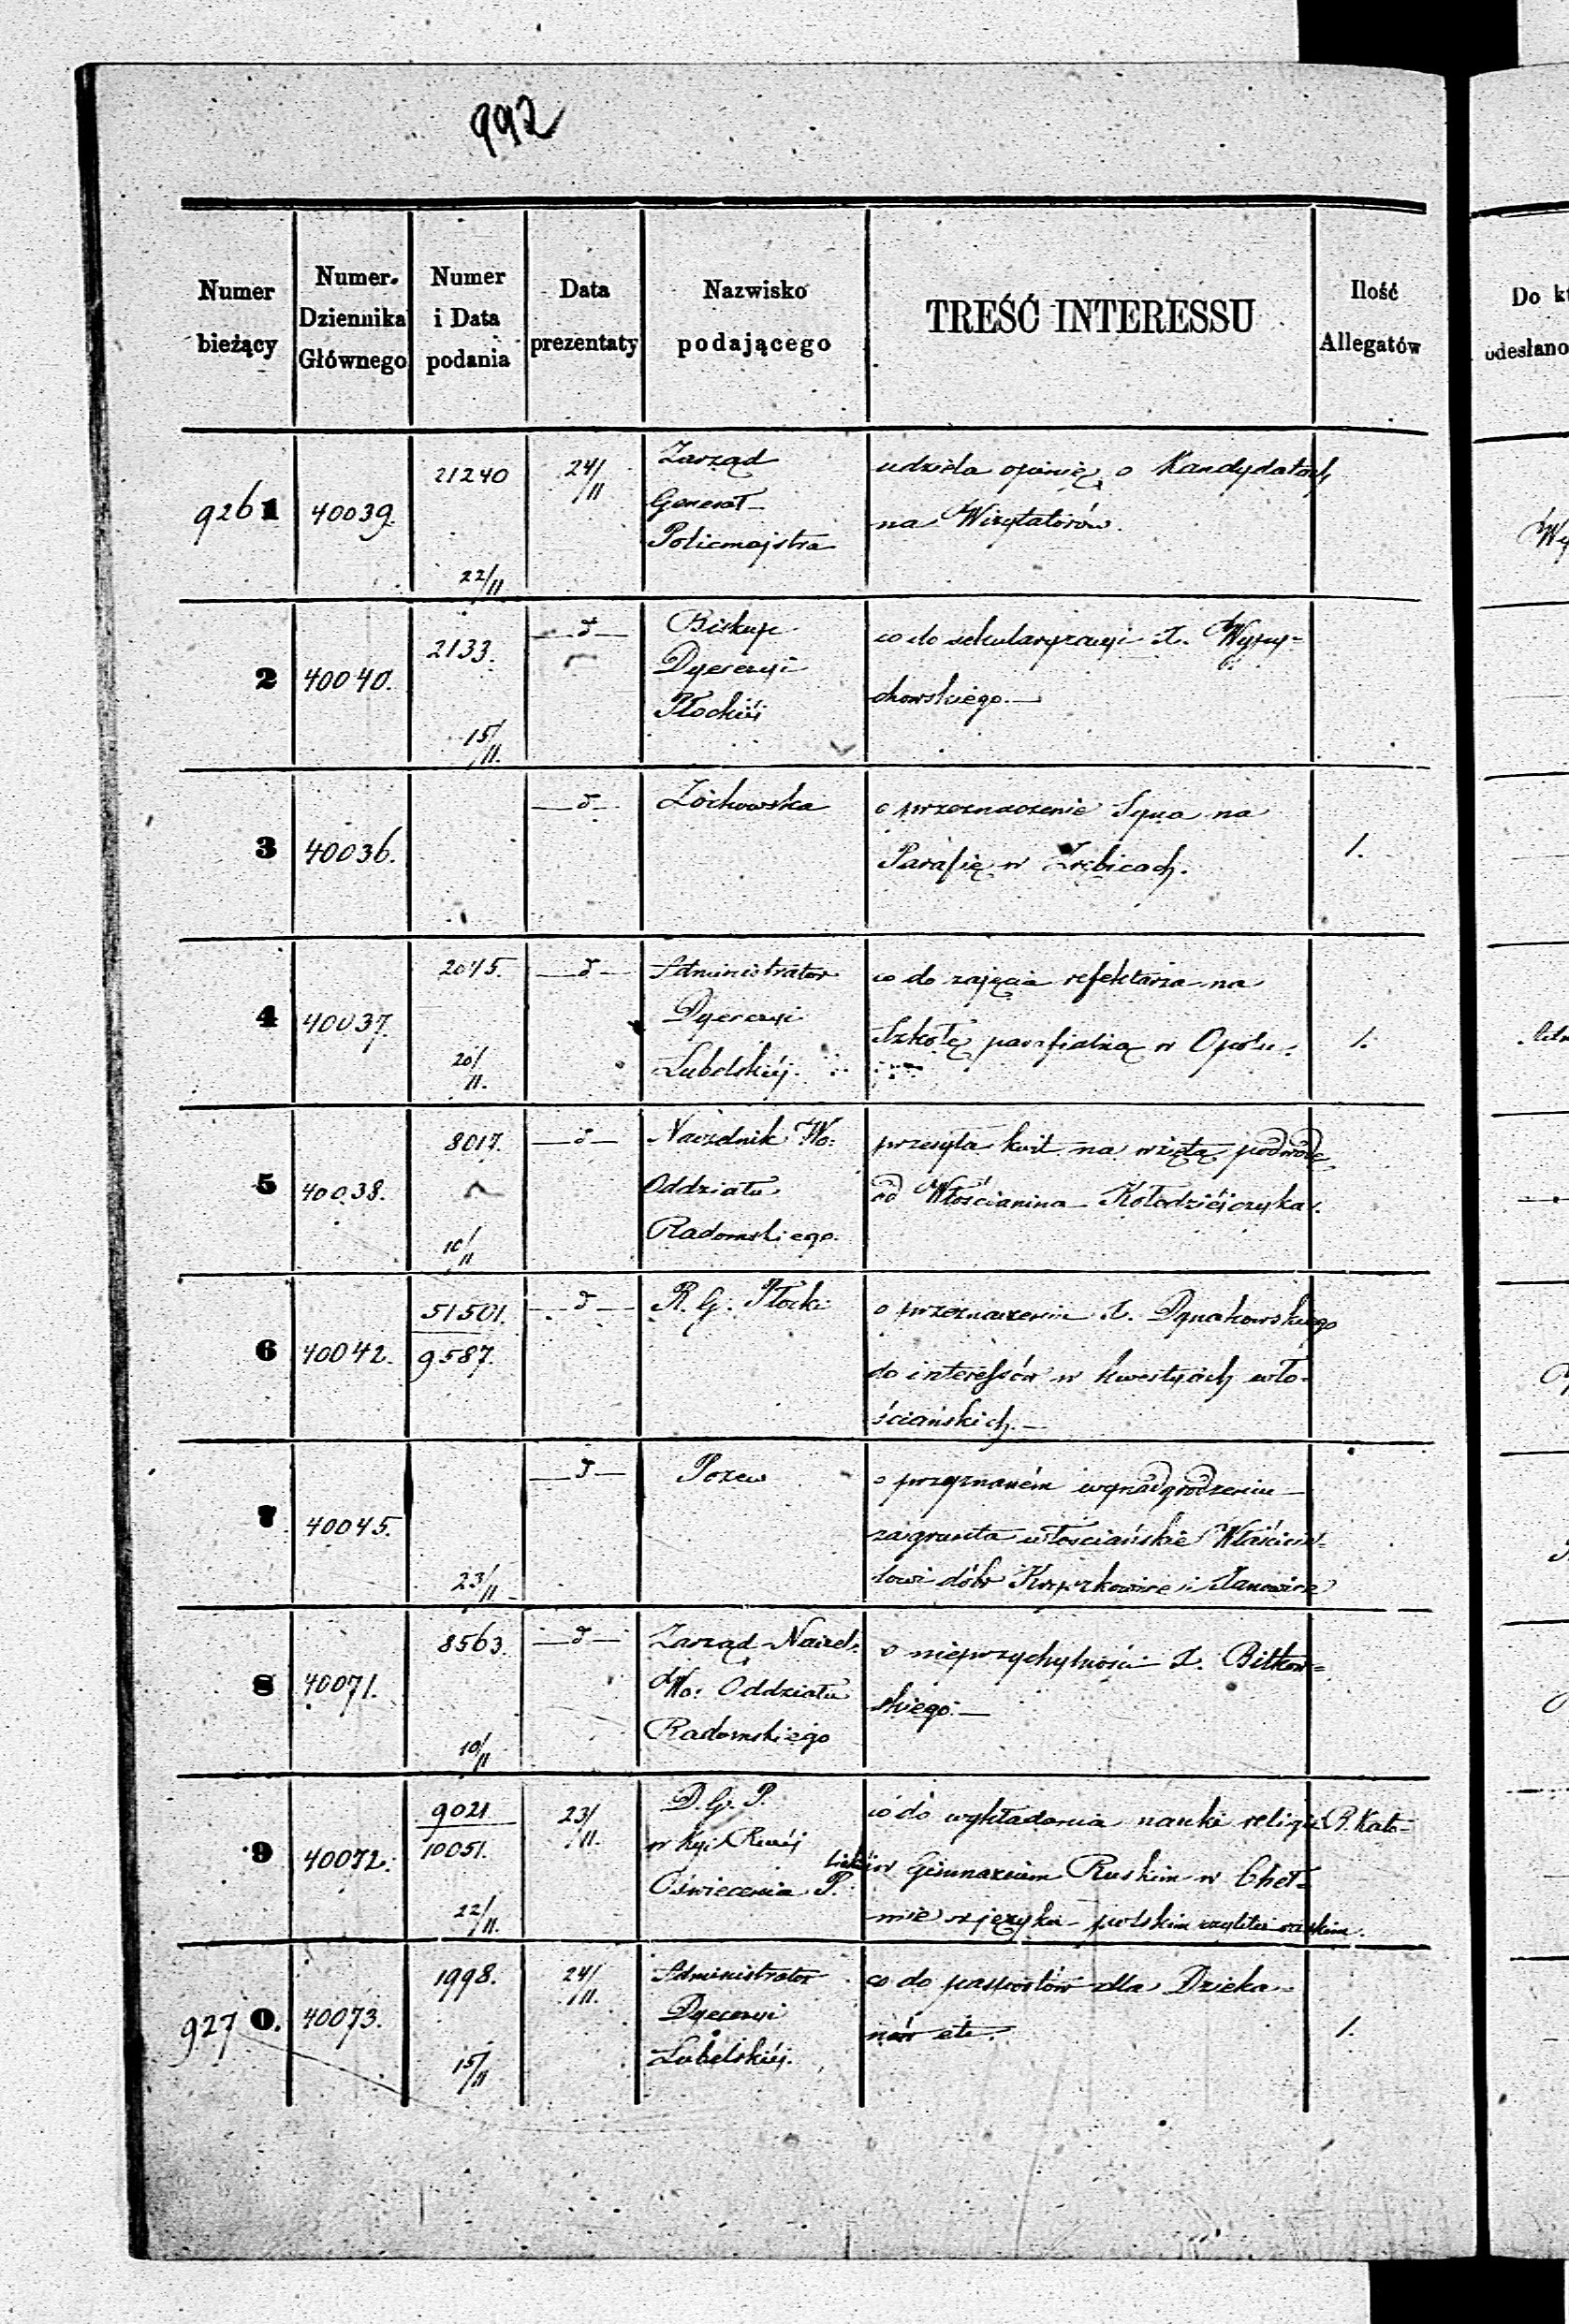 992
Numer bieżący
Numer Dziennika Głównego
Numer i Data podania
Data prezentaty
Nazwisko podającego
TREŚĆ INTERESSU
Ilość Allegatów
Do kt
odesłano
9261
40039.
21240
22/11
24/11
Zarząd
Generał-
Policmajstra
udziela opinię o Kandydatach
na Wizytatorów.
2
40040.
2133.
15/11.
—d—
Biskup
Dyecezyi
Płockiéj
co do sekularyzacyi X. Wypy-
chowskiego.—
3
40036.
—d—
o przeznaczenie Syna na
Parafię w Zrębicach.
1.
4
40037.
2045.
20/11.
—d—
Administrator
Dyecezyi
Lubelskiéj.
co do zajęcia refektarza na
Szkołę parafialną w Opolu.
1.
5
40038.
8017.
10/11
—d—
Naczelnik Wo:
Oddziału
Radomskiego.
przesyła kwit na wziętą podwodę
od Włościanina Kołodziéjczyka.
6
40042.
51501.
9587.
—d—
R. G. Płocki
o przeznaczeniu X.
do interessów w kwestyach wło-
ściańskich.—
7
40045.
23/11
—d—
Pozew
o przyznaném wynadgrodzeniu
za grunta włościańskie Właścicie-
lowi dóbr i Janowice
8
40071.
8563.
10/11
—d—
Zarząd Naczel.
Wo: Oddziału
Radomskiego
o nieprzychylności X. Bitkow-
skiego.—
9
40072.
9021
10051.
22/11.
23/11.
D. G. P.
w Kyi
Oświecenia P.
co do wykładania nauki religii R. Kato-
lickiéj w Gimnazium Ruskim w Cheł-
mie w języku polskim czyli też ruskim.
9270.
40073.
1998.
15/11
24/11.
Administrator
Dyecezyi
Lubelskiéj.
co do paszportów dla Dzieka-
nów etc.
1.